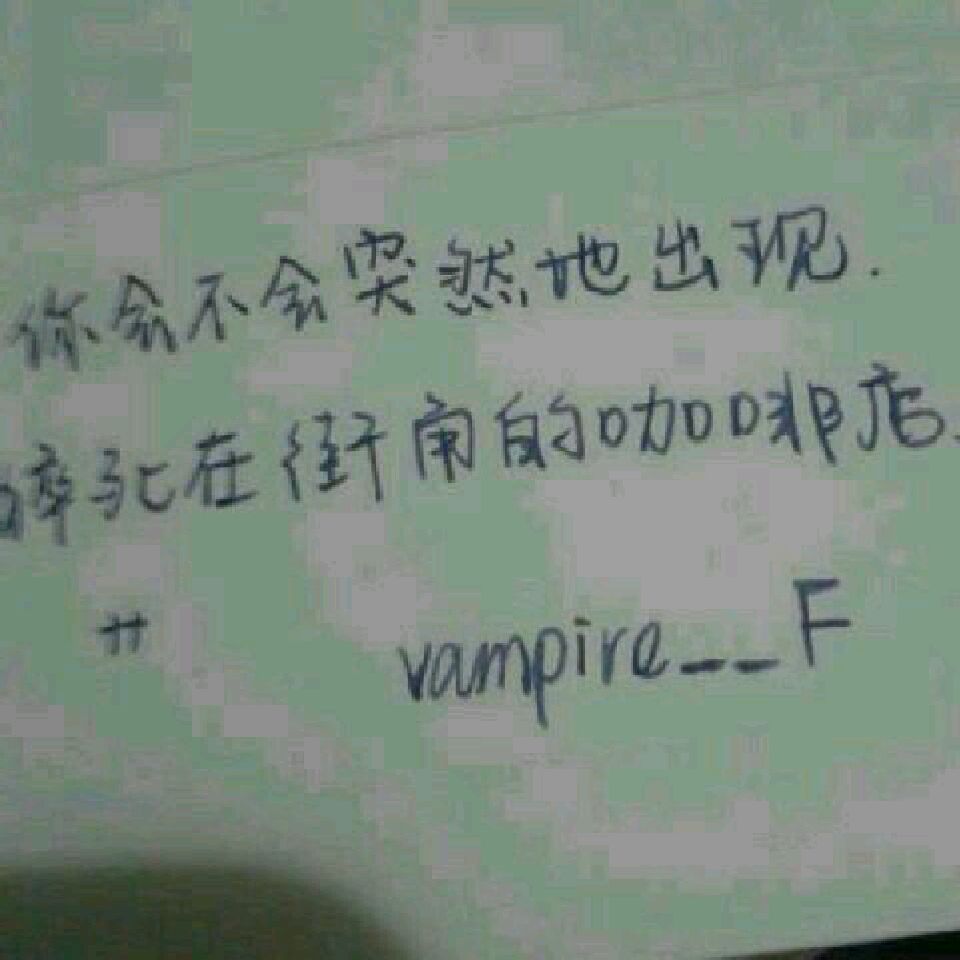 你会不会突然地出现.
死在街角的咖啡店.
vampire__F